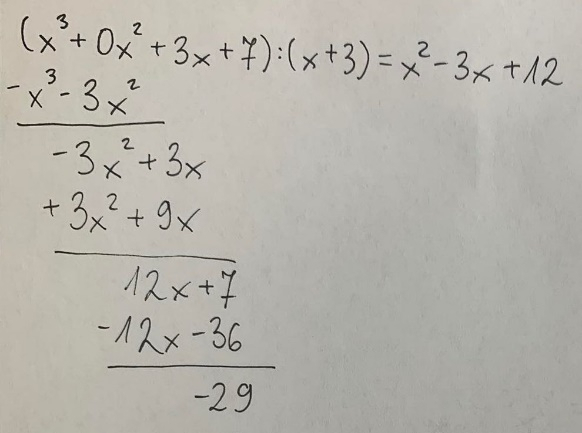 (x³ + 0x² + 3x + 7) : (x + 3) = x² - 3x + 12
- x³ - 3x²
- 3x² + 3x
+ 3x² + 9x
12x + 7
- 12x - 36
- 29